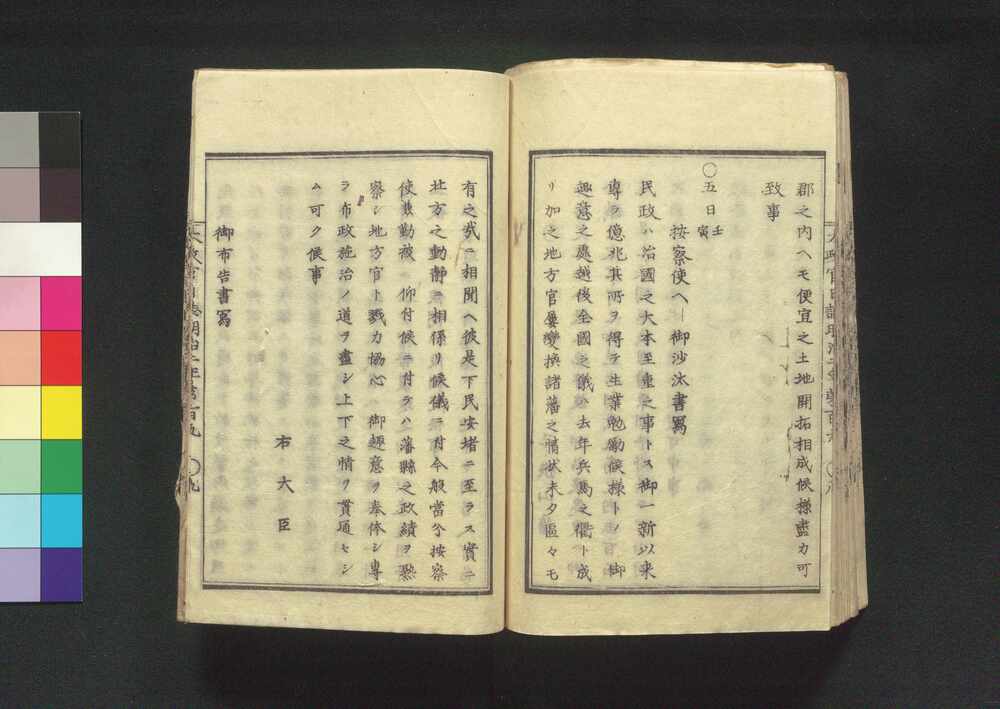 郡之内ヘモ便宜之土地開拓相成候様盡力可
致事
〇五日壬寅
按察使ヘ御沙汰書寫
民政ハ治國之大本至重之事トス御一新以来
専ラ億兆其所ヲ得テ生業勉勵候様トノ御
趣意之處越後全國之儀ハ去年兵馬之衢ト成
リ加之地方官屢變換諸藩之情状未タ區々モ
有之哉ニ相聞ヘ彼是下民安堵ニ至ラス實ニ
北方之動静ニ相係リ候儀ニ付今般當分按察
使兼勤被 仰付候ニ付テハ藩縣之政績ヲ熟
察シ地方官ト戮力協心 御趣意ヲ奉体シ専
ラ布政施治ノ道ヲ盡シ上下之情ヲ貫通セシ
ム可ク候事
右大臣
御布告書寫